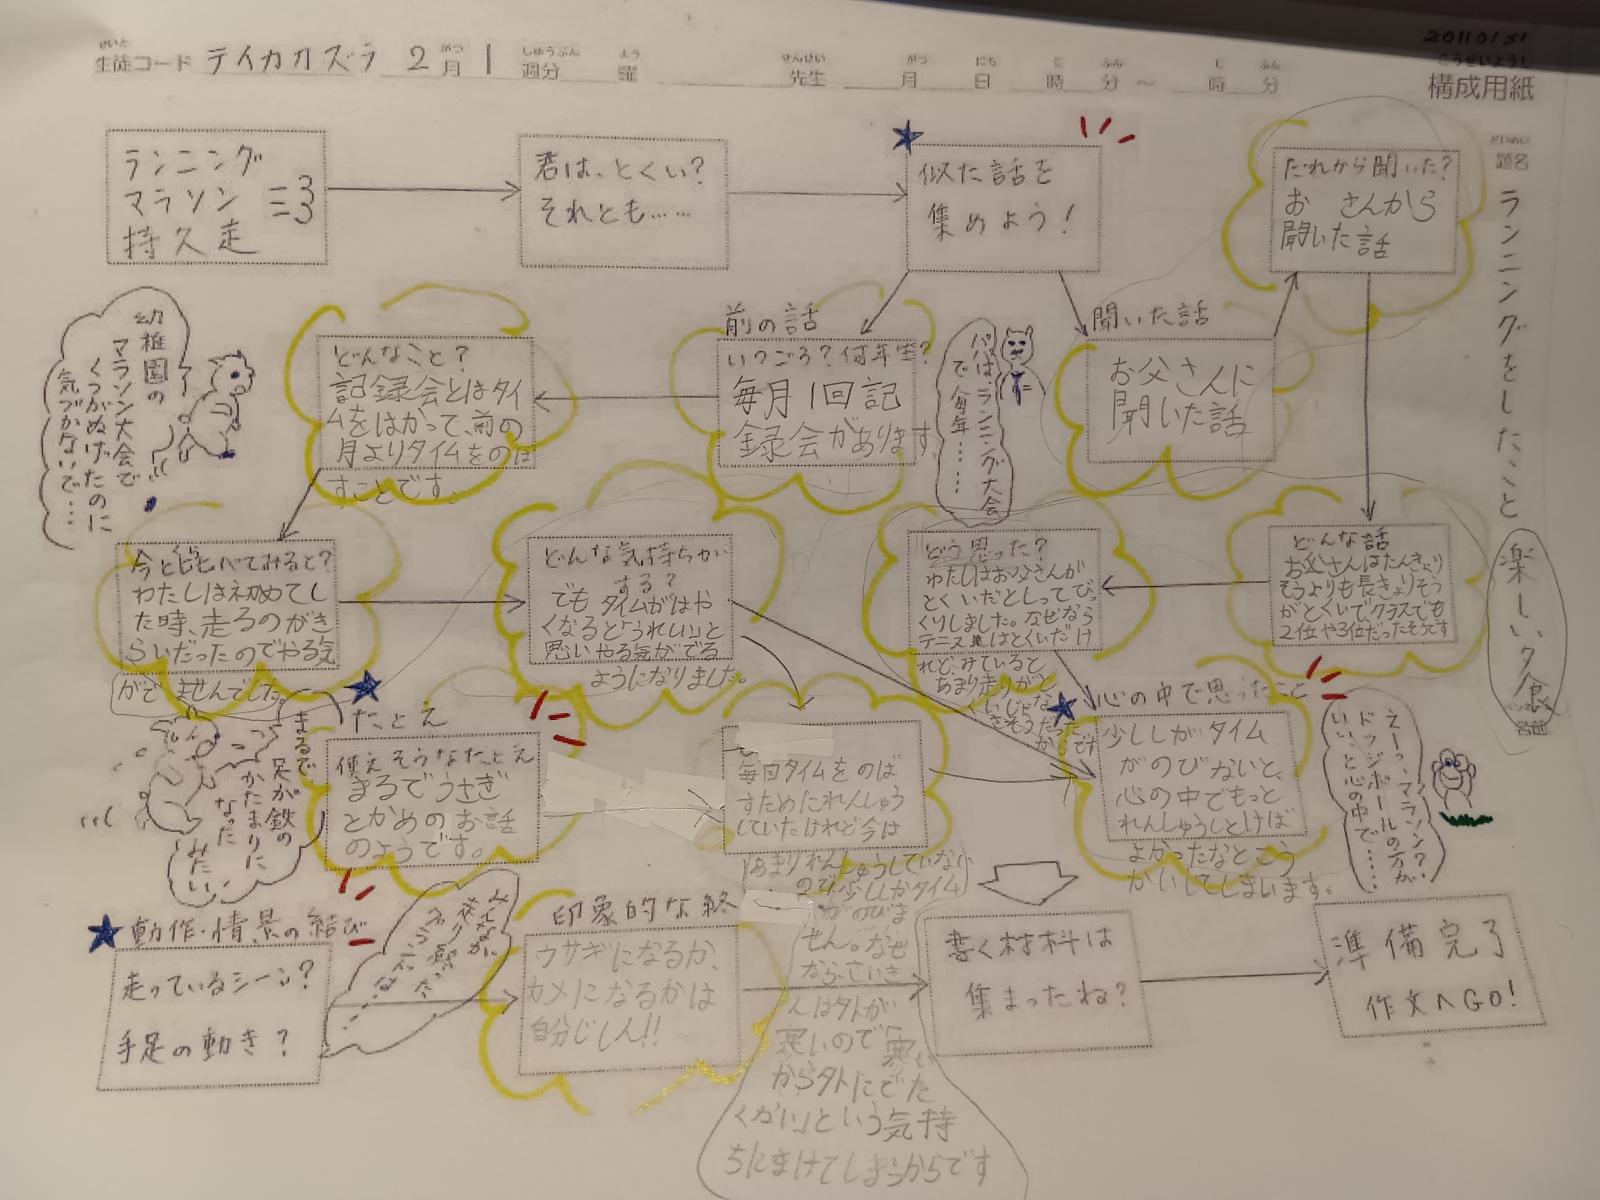 20110131
せいと
生徒コード テイカカズラ 2月 1週分 曜 先生 月 日 時 分 ～ 時 分
こうせいようし
構成用紙
だいめい
題名
ランニングをしたこと
楽しい夕食
名前
ランニング
マラソン
持久走
君は、とくい?
それとも……
似た話を
集めよう!
だれから聞いた?
お さんから
聞いた話
幼稚園の
マラソン大会で
くつがぬげたのに
気づかないで…
どんなこと?
記録会とはタイ
ムをはかって、前の
月よりタイムをのば
すことです。
前の話
いつごろ?何年生?
毎月1回記
録会があります。
パパは、ランニング大会
で毎年……
聞いた話
お父さんに
聞いた話
今と比べてみると?
わたしは初めてし
た時、走るのがき
らいだったのでやる気
がでませんでした。
どんな気持ちが
する?
でも タイムがはや
くなると「うれしい」と
思いやる気がでる
ようになりました。
どう思った?
わたしはお父さんが
とくいだとしってびっ
くりしました。なぜなら
テニスはとくいだけ
れど、みていると
あまり走りがと
くいじゃな
さそうだった
からです
どんな話
お父さんはたんきょり
そうよりも長きょりそう
がとくいでクラスでも
2位や3位だったそうです
まるで
足が鉄の
かたまりに
なった
みたい
たとえ
使えそうなたとえ
まるでうさぎ
とかめのお話
のようです。
毎日タイムをのば
すためにれんしゅう
していたけれど今は
あまりれんしゅうしていない
ので少ししかタイム
がのびま
せん。なぜ
ならさいき
んは外が
寒いので「寒い
から外にでた
くない」という気持
ちにまけてしまうからです
心の中で思ったこと
少ししかタイム
がのびないと、
心の中でもっと
れんしゅうしとけば
よかったなとこう
かいしてしまいます。
えーっ、マラソン?
ドッジボールの方が
いい、と心の中で……
動作・情景の結び
走っているシーン?
手足の動き?
印象的な終
ウサギになるか、
カメになるかは
自分じしん!!
書く材料は
集まったね?
準備完了
作文へGO!